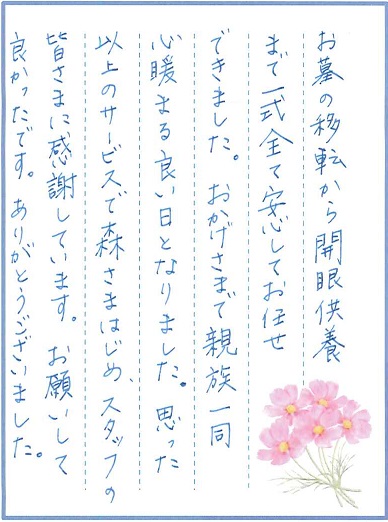 お墓の移転から開眼供養
まで一式全て安心してお任せ
できました。おかげさまで親族一同
心暖まる良い日となりました。思った
以上のサービスで森さまはじめ、スタッフの
皆さまに感謝しています。お願いして
良かったです。ありがとうございました。